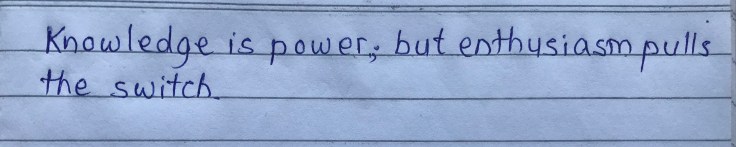 Knowledge is power, but enthusiasm pulls
the switch.